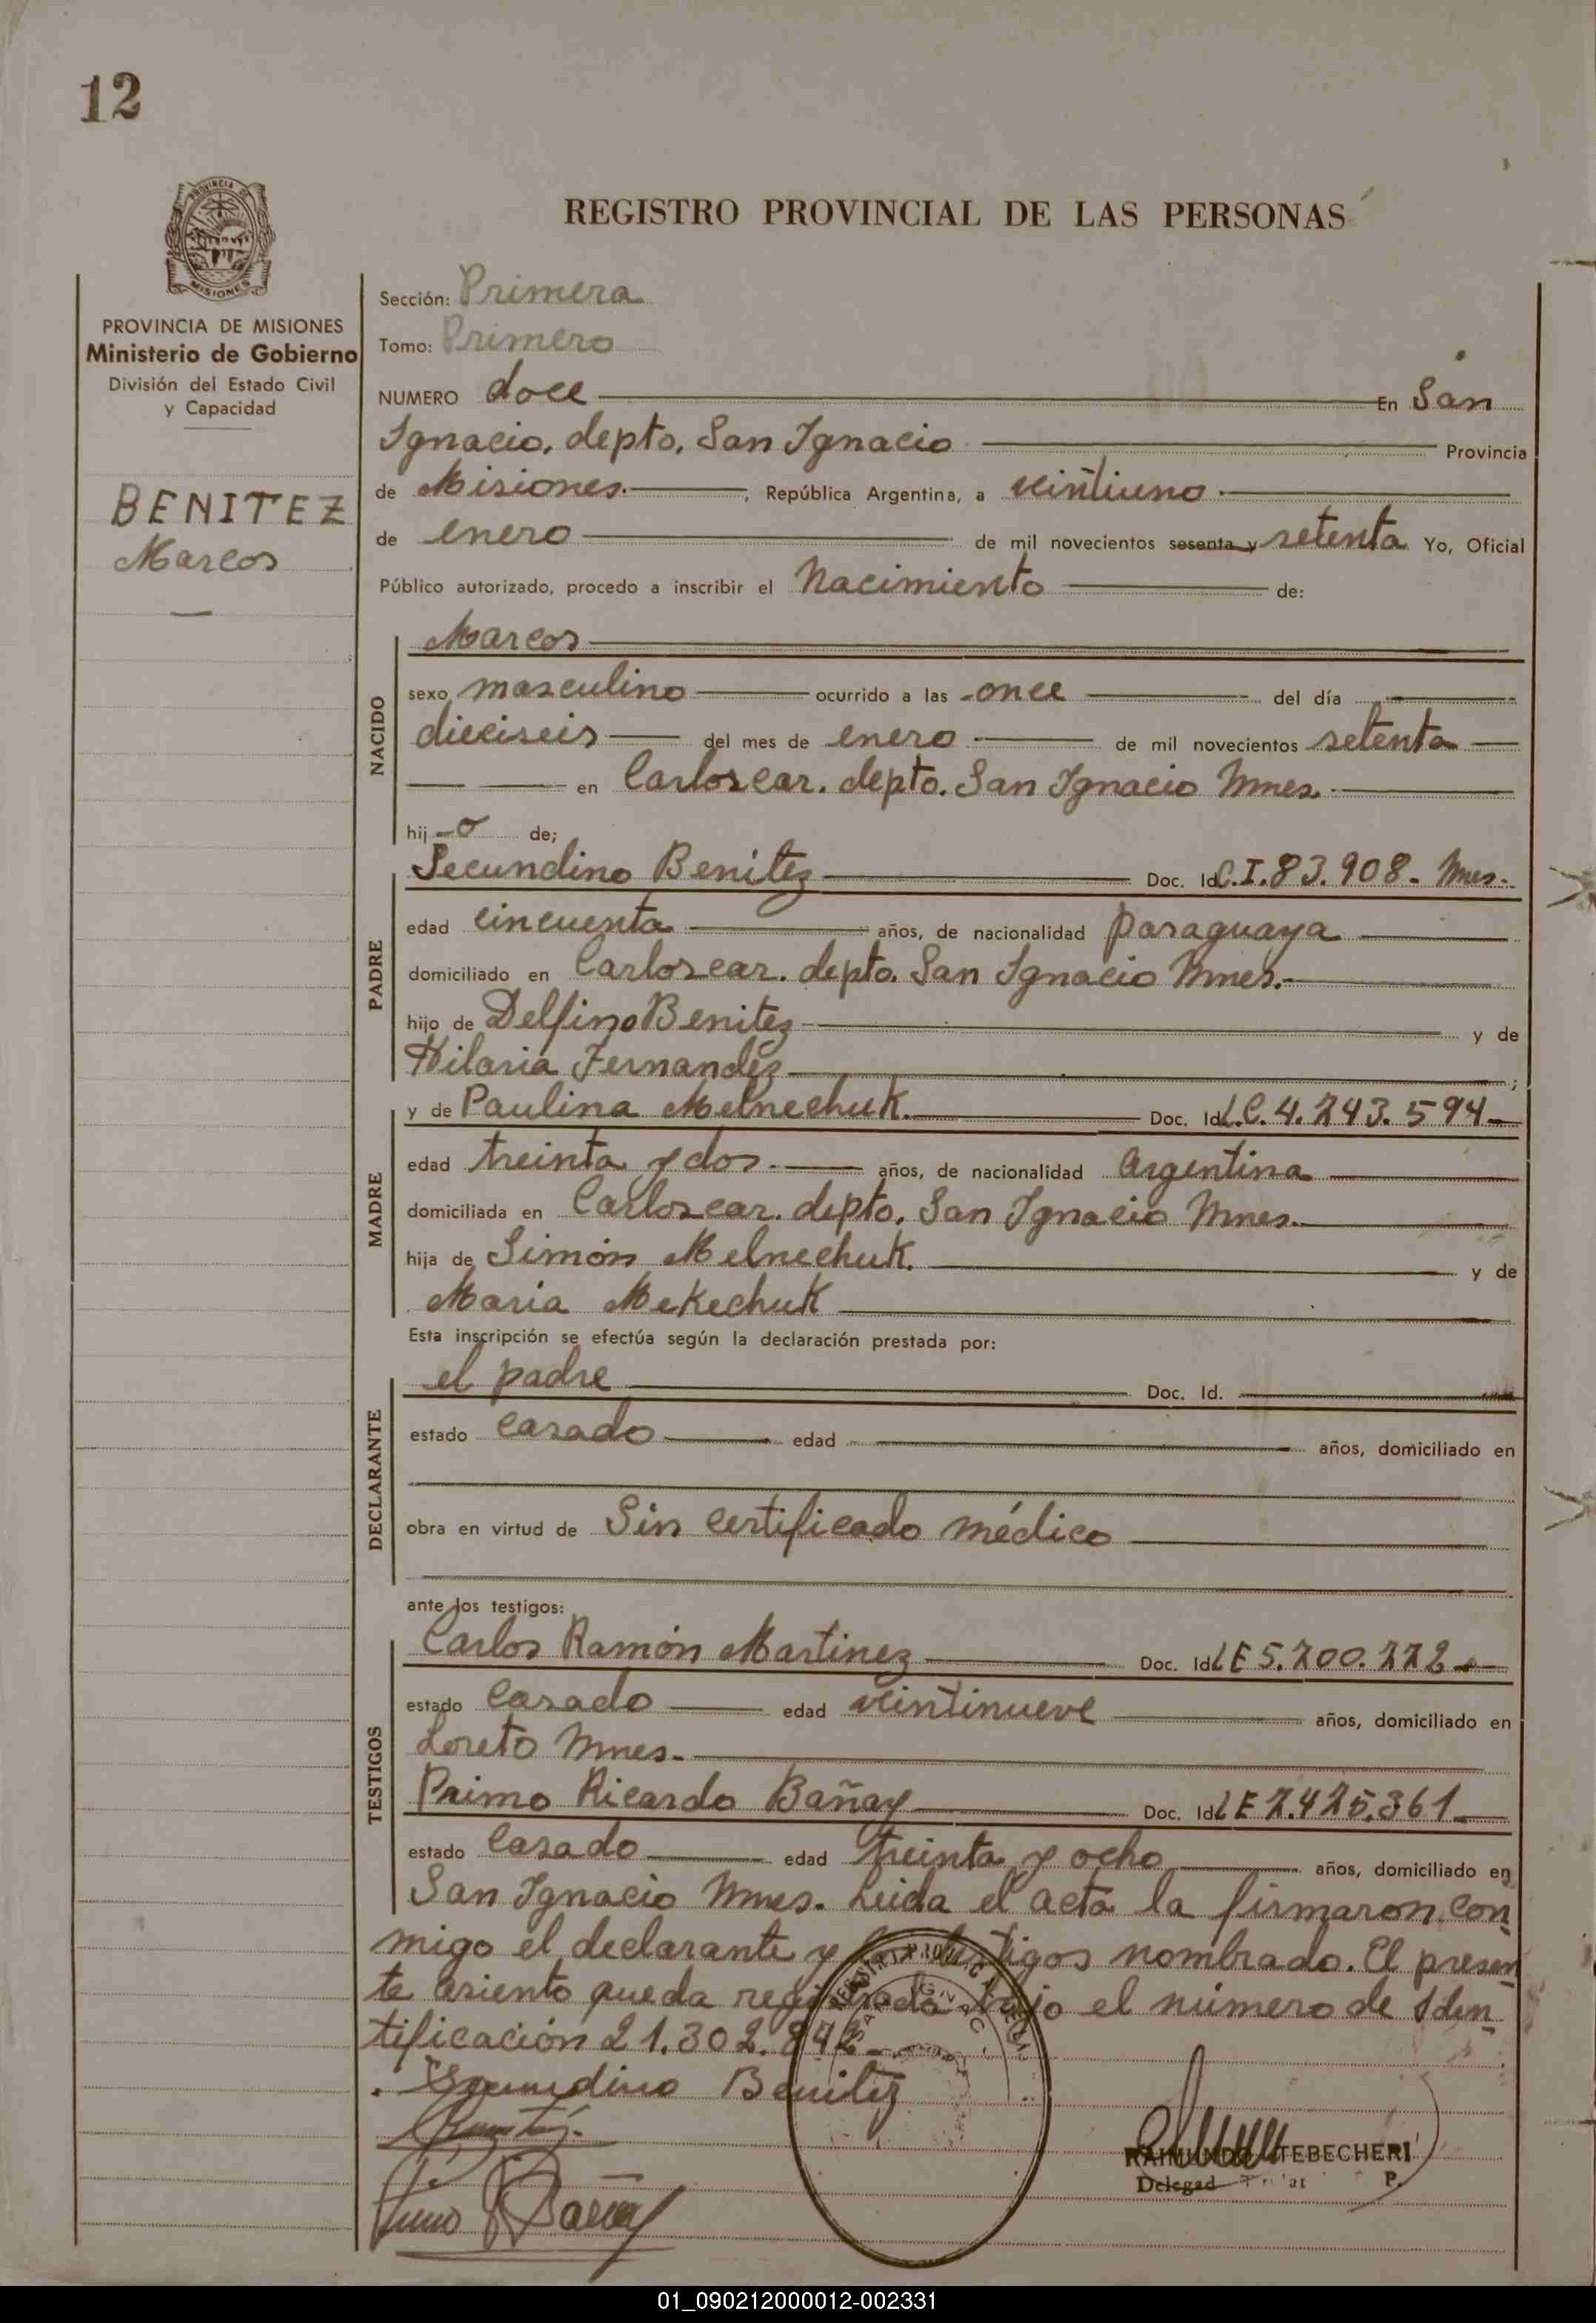 12
PROVINCIA DE
MISIONES
REGISTRO PROVINCIAL DE LAS PERSONAS
PROVINCIA DE MISIONES
Ministerio de Gobierno
División del Estado Civil
y Capacidad
BENITEZ
Marcos
Sección: Primera
Tomo: Primero
NUMERO doce En San
Ignacio, depto, San Ignacio Provincia
de Misiones. , República Argentina, a veintiuno
de enero de mil novecientos sesenta y setenta Yo, Oficial
Público autorizado, procedo a inscribir el Nacimiento de:
NACIDO
Marcos
sexo masculino ocurrido a las once del día
dieciseis del mes de enero de mil novecientos setenta
en Carloscar. depto. San Ignacio Mnes.
hij o de;
PADRE
Secundino Benitez Doc. Id C.I. 83.908. Mnes.
edad cincuenta años, de nacionalidad paraguaya
domiciliado en Carloscar. depto. San Ignacio Mnes.
hijo de Delfino Benitez y de
Hilaria Fernandez ;
MADRE
y de Paulina Melnechuk. Doc. Id L.C. 4.243.594
edad treinta y dos. años, de nacionalidad Argentina
domiciliada en Carloscar. depto. San Ignacio Mnes.
hija de Simón Melnechuk. y de
Maria Mekechuk
Esta inscripción se efectúa según la declaración prestada por:
DECLARANTE
el padre Doc. Id.
estado casado edad años, domiciliado en
obra en virtud de Sin certificado médico
ante los testigos:
TESTIGOS
Carlos Ramón Martinez Doc. Id LE
estado casado edad veintinueve años, domiciliado en
Loreto Mnes.
Primo Ricardo Bañay Doc. Id LE
estado casado edad treinta y ocho años, domiciliado en
San Ignacio Mnes. Leida el acta la firmaron con
migo el declarante y testigos nombrado. El presen
te asiento queda registrado bajo el número de Iden
tificación 21.302.842
Secundino Benitez
RAIMUNDO TEBECHERI
Delegad P.
01_090212000012-002331